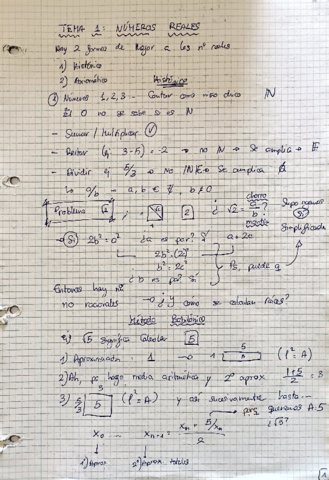 TEMA 1: NÚMEROS REALES
Hay 2 formas de llegar a los nº reales
1) Histórico
2) Axiomático
Histórico
Números 1, 2, 3... Contar como uso duro ℕ
El 0 no se sabe si es ℕ
- Sumar / Multiplicar
- Restar ej: 3-5 = -2 → no ℕ → Se amplía →
- Dividir ej 5/3 → No → Se amplía
↳ a/b - a, b ∈ , b ≠ 0
Problema √2 2 ¿√2 = a/b?
Simplificada
→ Si 2b² = a² ¿a es par? Sí a = 2c
2b² = (2c)²
b² = 2c²
¿b es par? Sí
Entonces hay nº
no racionales → ¿y como se calculan raíces?
Método Babilónico
Ej) √5 significa calcular 5
1) Aproximación: 1 → 1 5 (l² = A)
2) Ah, pc hago media aritmética y 2ª aprox (1+5)/2 = 3
3) 5/3 3 5 (l² = A) y así sucesivamente hasta...
pq queremos A: 5
¿√5?
x₀ ... xₙ₊₁ = (xₙ + 5/xₙ)/2
1) Aprox